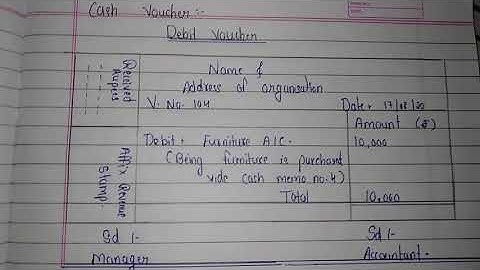 Cash Voucher :-
Debit Voucher
Received Rupees
Name &
Address of organisation
V. No. 104
Date. 17/08/20
Amount (₹)
Debit. Furniture A/C.
10,000
(Being furniture is purchased
vide cash memo no. 4)
Total
10,000
Affix Revenue Stamp.
Sd /-
Sd /-
Manager
Accountant.